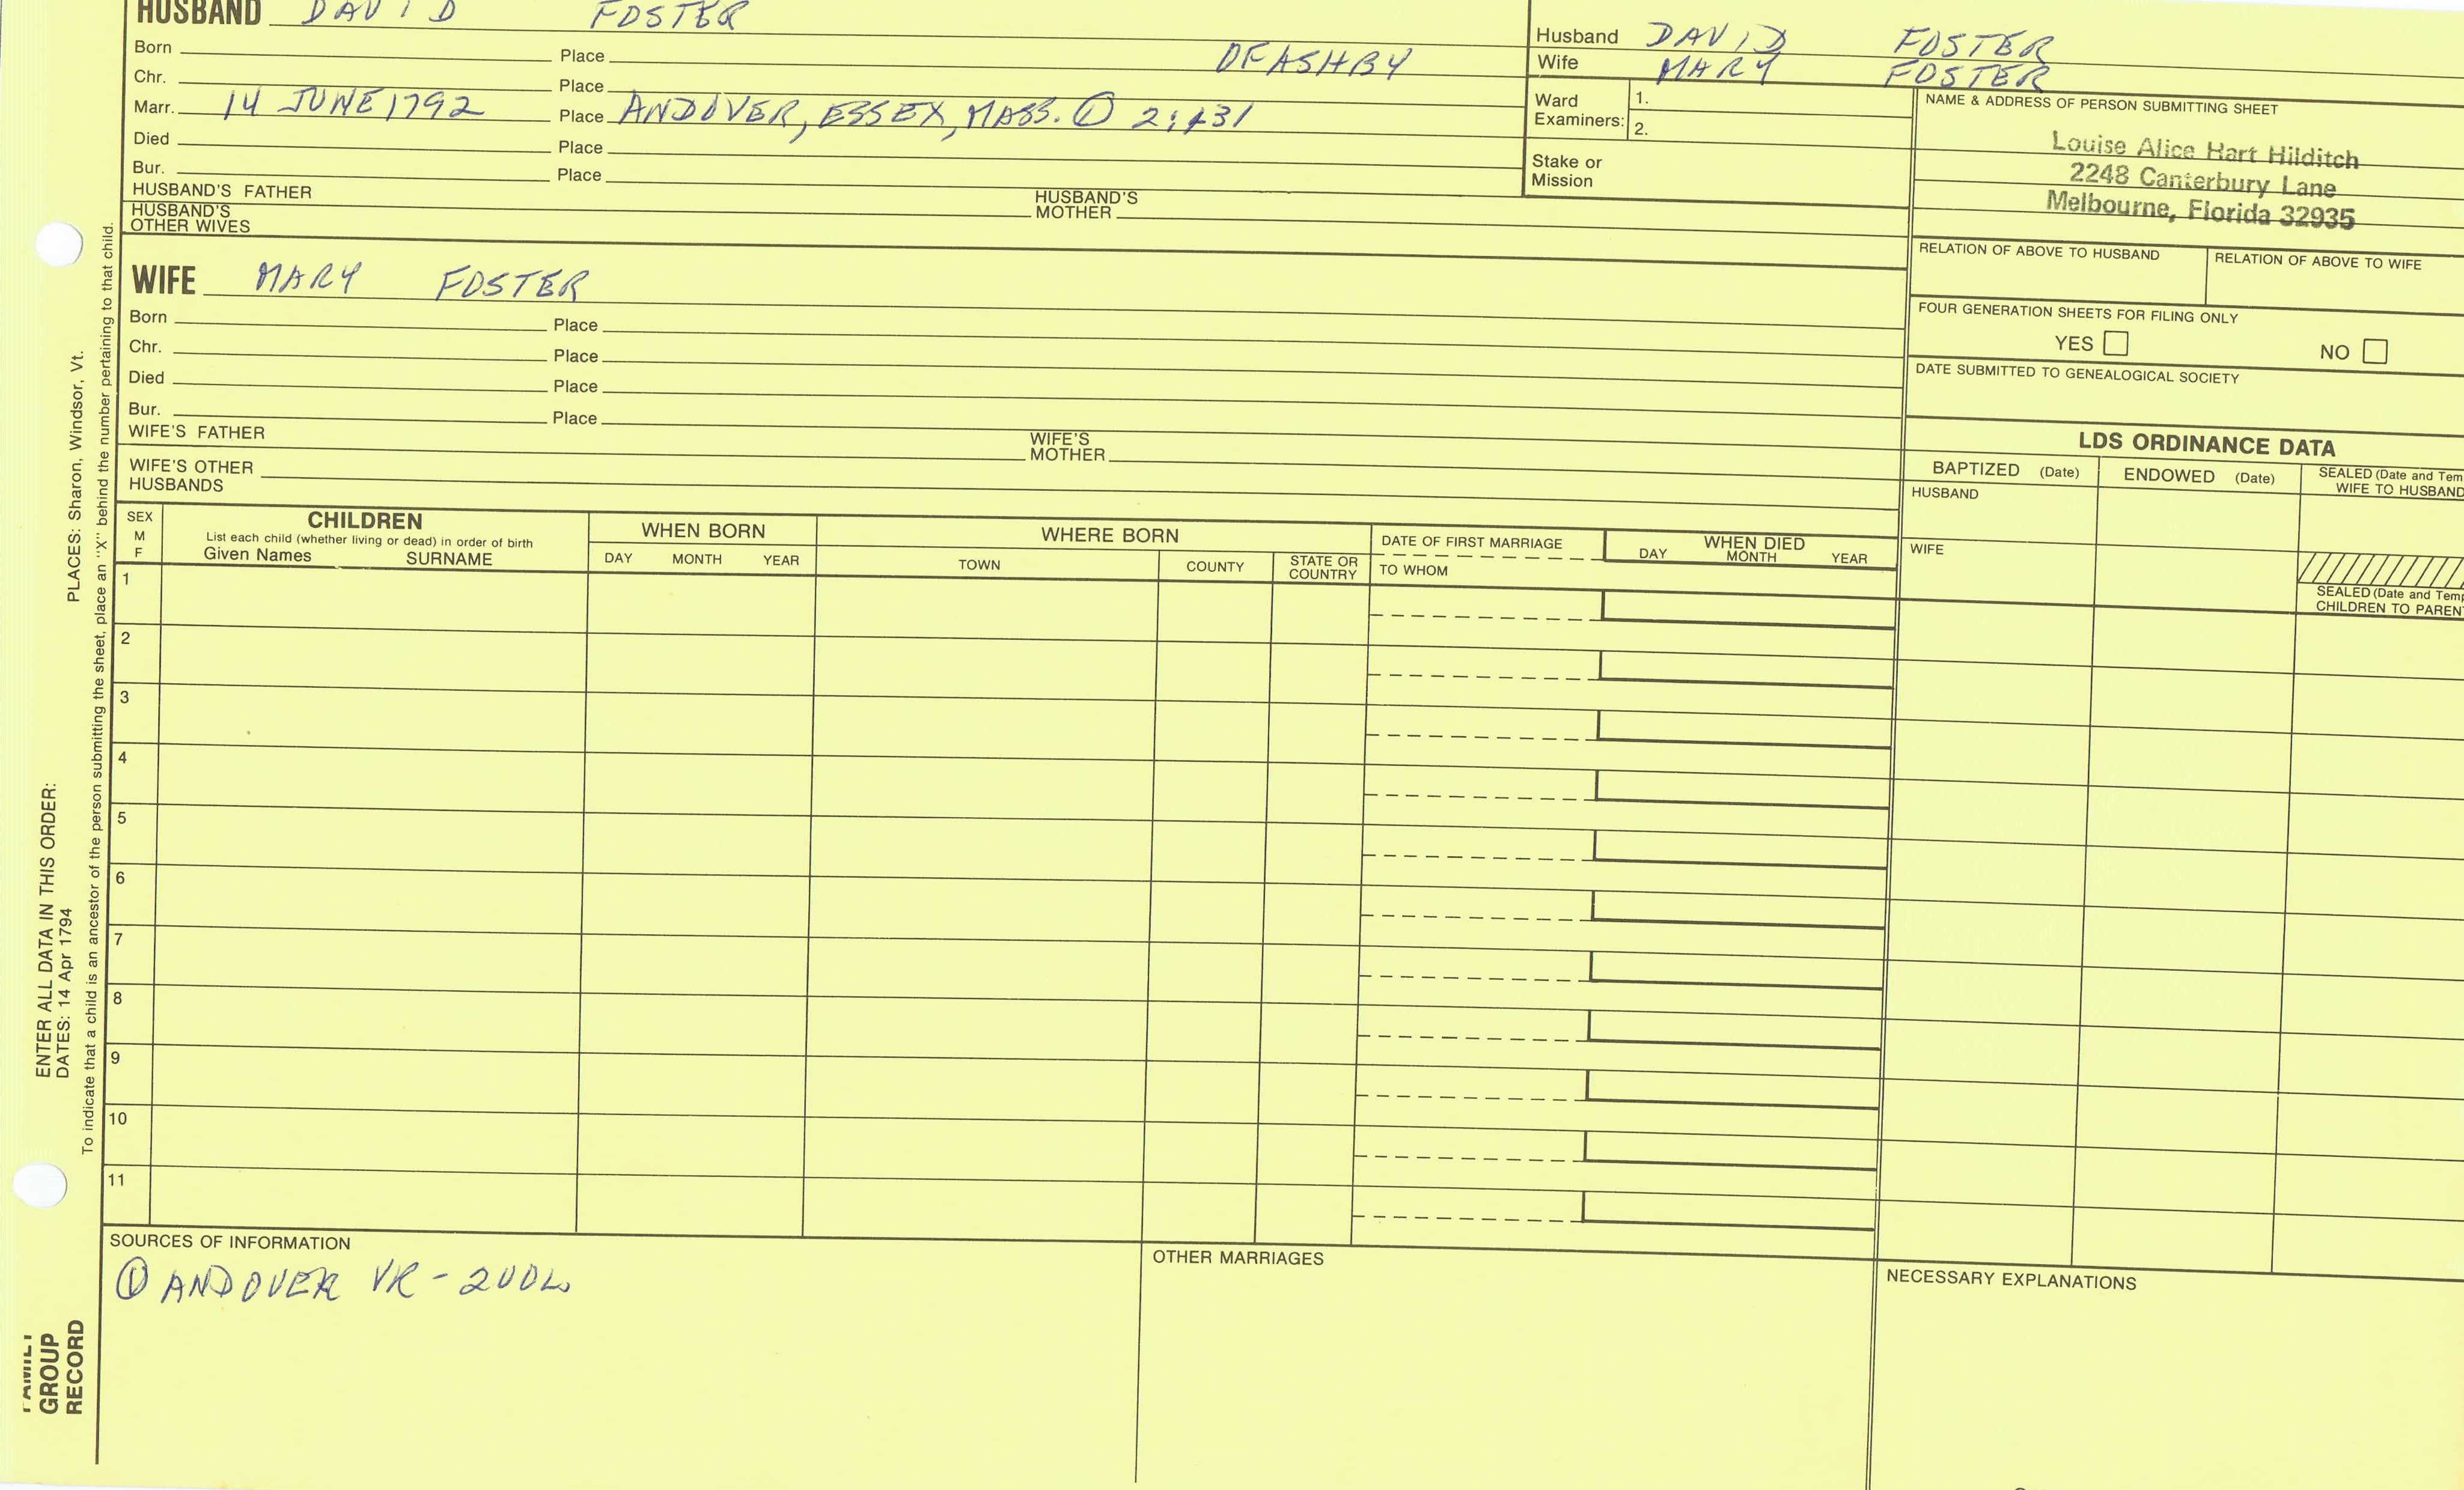 HUSBAND DAVID FOSTER
Born Place OF ASHBY
Chr. Place
Marr. 14 JUNE 1792 Place ANDOVER, ESSEX, MASS. ①
Died Place
Bur. Place
HUSBAND'S FATHER HUSBAND'S MOTHER
HUSBAND'S OTHER WIVES
WIFE MARY FOSTER
Born Place
Chr. Place
Died Place
Bur. Place
WIFE'S FATHER WIFE'S MOTHER
WIFE'S OTHER HUSBANDS
Husband DAVID FOSTER
Wife MARY FOSTER
Ward Examiners: 1.
2.
Stake or Mission
NAME & ADDRESS OF PERSON SUBMITTING SHEET
Louise Alice Hart Hilditch
2248 Canterbury Lane
Melbourne, Florida 32935
RELATION OF ABOVE TO HUSBAND RELATION OF ABOVE TO WIFE
FOUR GENERATION SHEETS FOR FILING ONLY
YES NO
DATE SUBMITTED TO GENEALOGICAL SOCIETY
LDS ORDINANCE DATA
BAPTIZED (Date) ENDOWED (Date) SEALED (Date and Tem
WIFE TO HUSBAND
HUSBAND
WIFE
SEALED (Date and Temp
CHILDREN TO PARENT
SEX
M
F
CHILDREN
List each child (whether living or dead) in order of birth
Given Names SURNAME
WHEN BORN
DAY MONTH YEAR
WHERE BORN
TOWN COUNTY STATE OR COUNTRY
DATE OF FIRST MARRIAGE
TO WHOM
WHEN DIED
DAY MONTH YEAR
1
2
3
4
5
6
7
8
9
10
11
SOURCES OF INFORMATION
① ANDOVER VR - 2VOL
OTHER MARRIAGES
NECESSARY EXPLANATIONS
ENTER ALL DATA IN THIS ORDER:
DATES: 14 Apr 1794 PLACES: Sharon, Windsor, Vt.
To indicate that a child is an ancestor of the person submitting the sheet, place an "X" behind the number pertaining to that child.
FAMILY
GROUP
RECORD